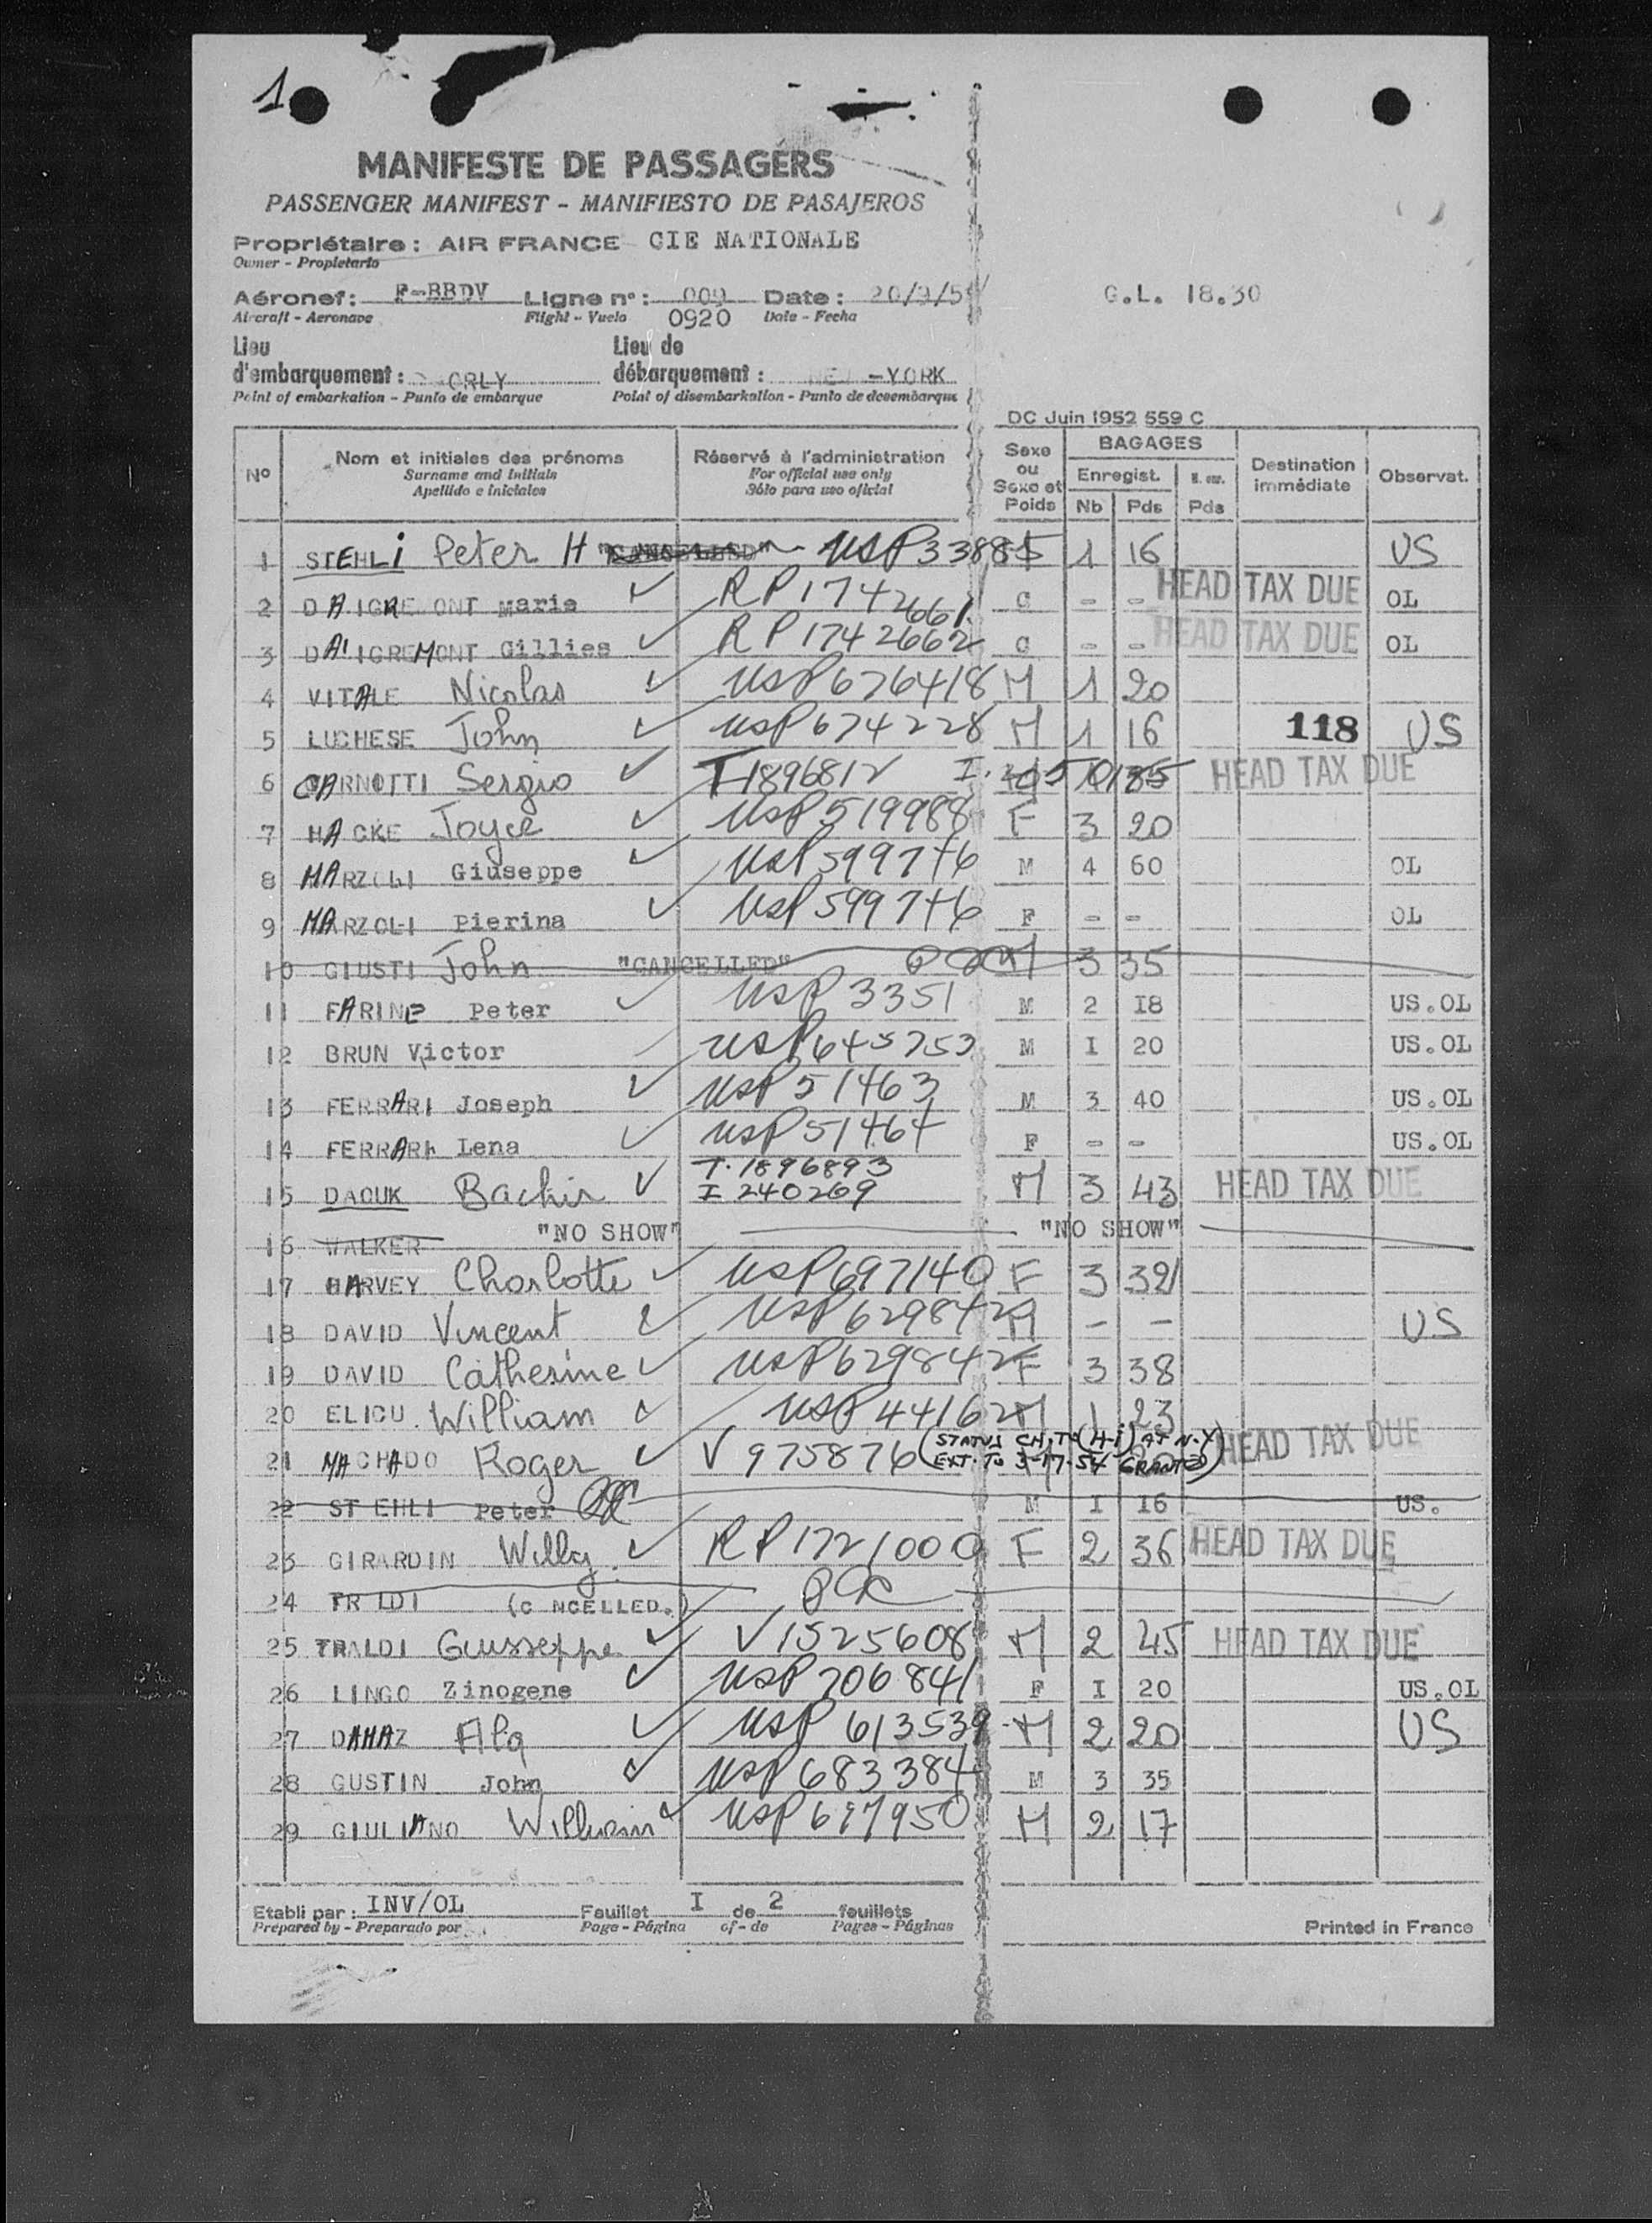 1
MANIFESTE DE PASSAGERS
PASSENGER MANIFEST - MANIFIESTO DE PASAJEROS
Propriétaire : AIR FRANCE CIE NATIONALE
Owner - Propietario
Aéronef : F-BBDV Ligne n° : 009 Date : 20/9/5 G.L. 18.30
Aircraft - Aeronave Flight - Vuelo 0920 Date - Fecha
Lieu Lieu de
d'embarquement : ORLY débarquement : -YORK
Point of embarkation - Punto de embarque Point of disembarkation - Punto de desembarque
DC Juin 1952 559 C
Nº Nom et initiales des prénoms Réservé à l'administration Sexe ou Sexe et Poids BAGAGES Destination immédiate Observat.
Surname and Initials For official use only Enregist.
Apellido e iniciales Sólo para uso oficial Nb Pds Pds
1 STEHLi Peter H "CANCELLED" USP33885 1 16 US
2 DAIGREMONT Marie RP1742661 C - - HEAD TAX DUE OL
3 DAIGREMONT Gillies RP1742662 C - - HEAD TAX DUE OL
4 VITALE Nicolas USP676418 M 1 20
5 LUCHESE John USP674228 M 1 16 118 US
6 CARNOTTI Sergio T-1896812 HEAD TAX DUE
7 HACKE Joyce USP519988 F 3 20
8 MARZOLI Giuseppe USP599746 M 4 60 OL
9 MARZOLI Pierina USP599746 F - - OL
10 GIUSTI John "CANCELLED" M 3 35
11 FARINE Peter USP3351 M 2 I8 US.OL
12 BRUN Victor USP645753 M I 20 US.OL
13 FERRARI Joseph USP51463 M 3 40 US.OL
14 FERRARI Lena USP51464 F - - US.OL
15 DAOUK Bachir T.1896893 I 240269 M 3 43 HEAD TAX DUE
16 WALKER "NO SHOW" "NO SHOW"
17 HARVEY Charlotte USP697140 F 3 32
18 DAVID Vincent USP629842 M - - US
19 DAVID Catherine USP629842 F 3 38
20 ELICU William USP44162 M 1 23
21 MACHADO Roger V975876 (STATUS CH. TO (H-i) AT N.Y. EXT. TO 3-17-54 GRANTED) HEAD TAX DUE
22 STEHLI Peter M I I6 US.
23 GIRARDIN Willy RP1721000 F 2 36 HEAD TAX DUE
24 TR LDI (C NCELLED.)
25 TRALDI Giusseppe V1525608 M 2 45 HEAD TAX DUE
26 LINGO Zinogene USP206841 F I 20 US.OL
27 DAHAZ Ala USP 613539 M 2 20 US
28 GUSTIN John USP683384 M 3 35
29 GIULIANO William USP697950 M 2 17
Etabli par : INV/OL Feuillet I de 2 feuillets
Prepared by - Preparado por Page - Página of - de Pages - Páginas Printed in France